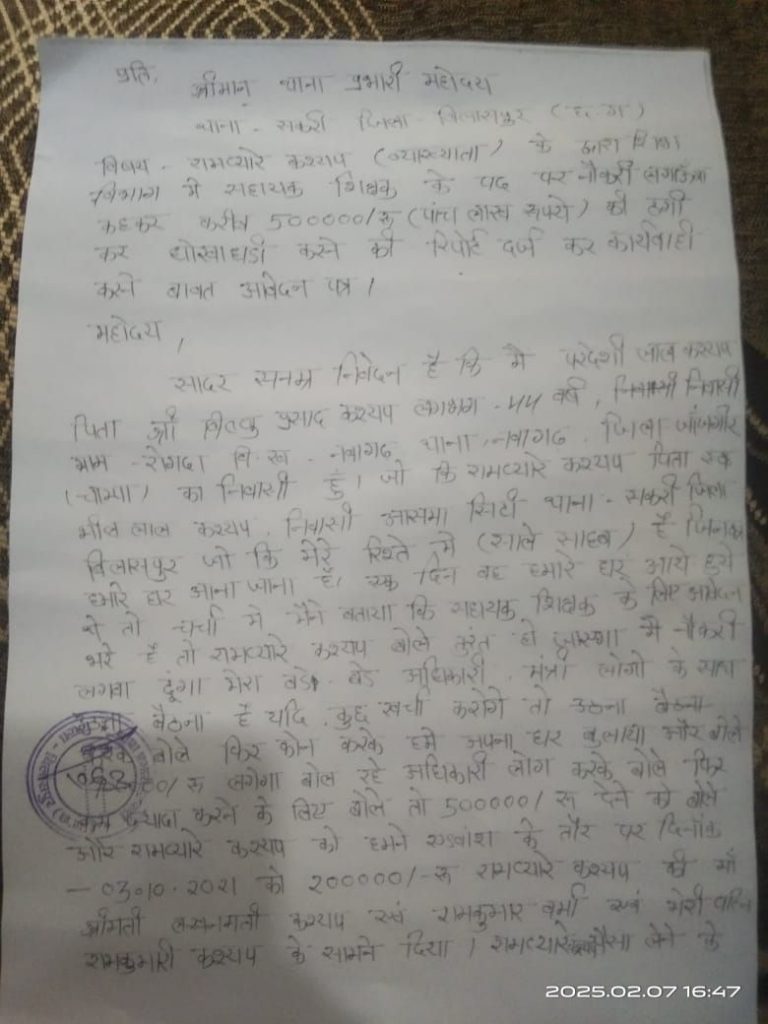 प्रति,
श्रीमान् थाना प्रभारी महोदय
थाना - सकरी जिला - बिलासपुर (छ.ग)
विषय - रामप्यारे कश्यप (व्याख्याता) के द्वारा शिक्षा
विभाग में सहायक शिक्षक के पद पर नौकरी लगाऊंगा
कहकर करीब 500000/रू (पांच लाख रूपये) की ठगी
कर धोखाधडी करने की रिपोर्ट दर्ज कर कार्यवाही
करने बाबत आवेदन पत्र ।
महोदय,
सादर सनम्र निवेदन है कि मै परदेशी लाल कश्यप
पिता श्री प्रसाद कश्यप लगभग - 44 वर्ष, निवासी
ग्राम - रोगदा वि.ख. - नवागढ थाना - नवागढ - जिला जांजगीर
(चाम्पा) का निवासी हुँ। जो कि रामप्यारे कश्यप पिता स्व
लाल कश्यप, निवासी आसमा सिटी थाना - सकरी जिला
बिलासपुर जो कि मेरे रिश्ते में (साले साहब) है जिनका
हमारे घर आना जाना है। एक दिन वह हमारे घर आये हुये
थे तो चर्चा में मैने बताया कि सहायक शिक्षक के लिए आवेदन
भरे है तो रामप्यारे कश्यप बोले तुरंत हो जाएगा मै नौकरी
लगवा दूंगा मेरा बडे - बडे अधिकारी, मंत्री लोगो के साथ
बैठना है यदि कुछ खर्चा करोगे तो उठना बैठना
करके बोले फिर फोन करके हमे अपना घर बुलाया और बोले
/रू लगेगा बोल रहे अधिकारी लोग करके बोले फिर
कम ज्यादा करने के लिए बोले तो 500000/रू देने को बोले
और रामप्यारे कश्यप को हमने एडवांश के तौर पर दिनांक
- 03.10.2021 को 200000/-रू रामप्यारे कश्यप की माँ
श्रीमती लखनमती कश्यप एवं रामकुमार वर्मा एवं मेरी पत्नि
रामकुमारी कश्यप के सामने दिया । रामप्यारे पैसा लेने के
2025.02.07 16:47